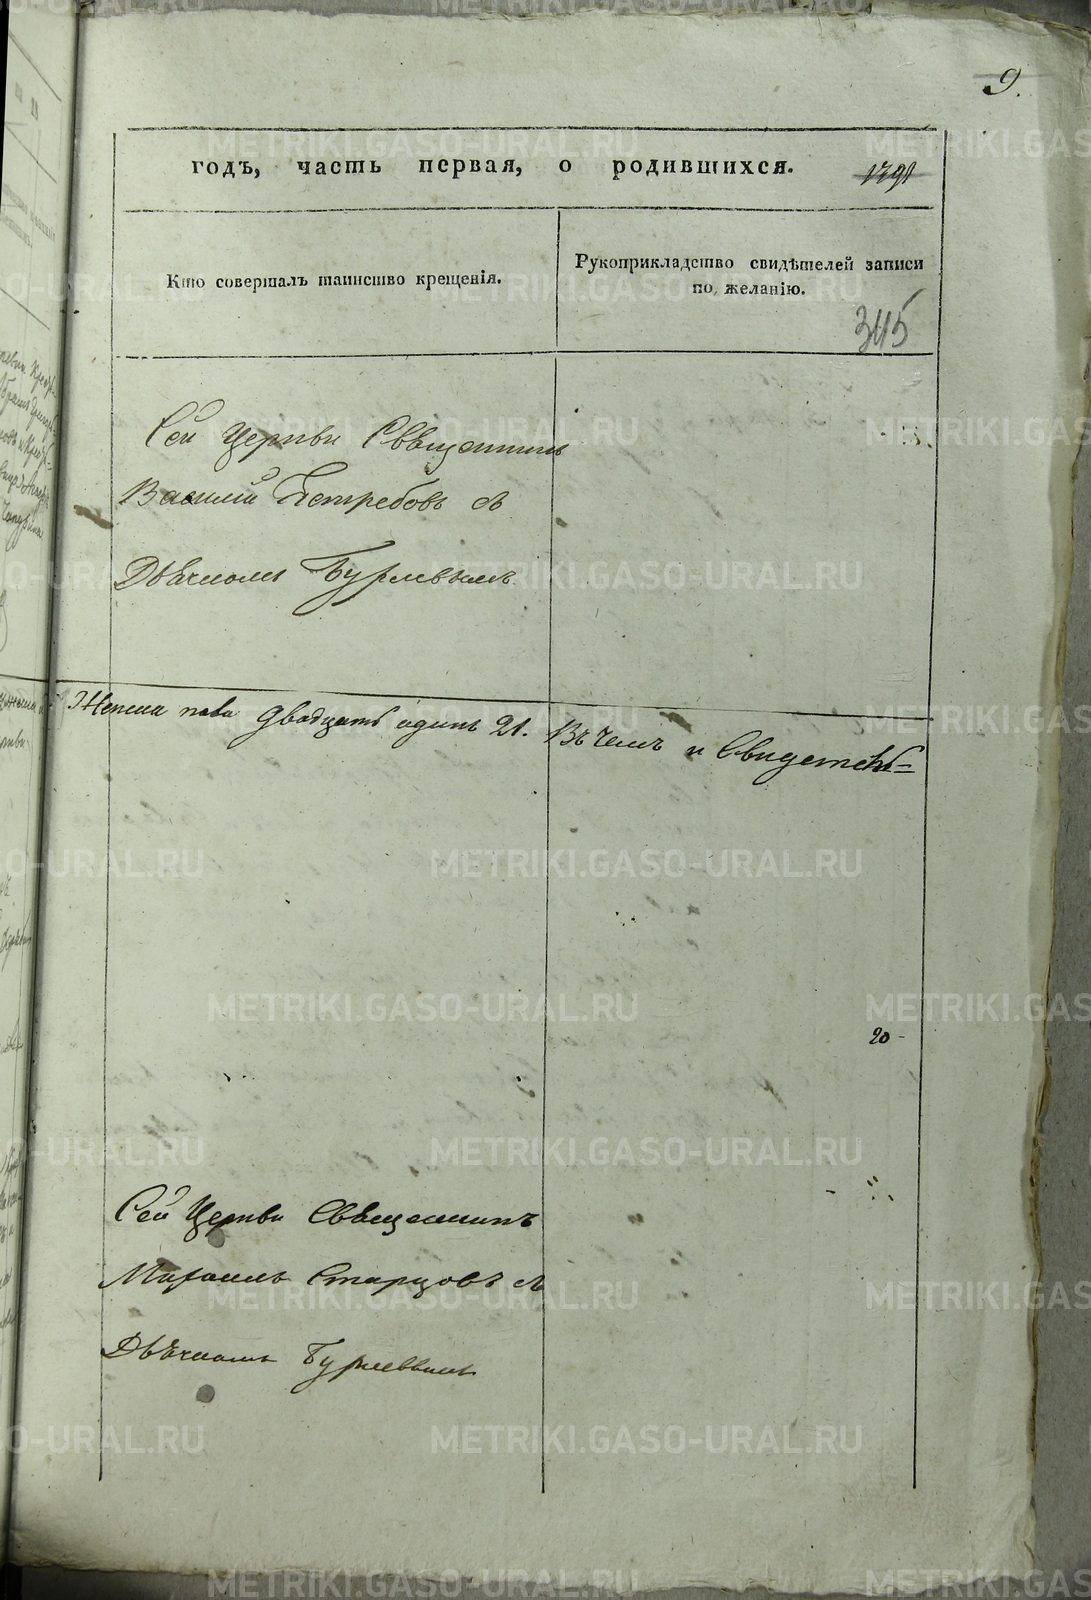 9.
годъ, часть первая, о родившихся. 1791
Кто совершалъ таинство крещенія.
Рукоприкладство свидѣтелей записи
по желанію.
345
Сей Церкви Священникъ
Василій Ястребовъ съ
Дьячкомъ Бурлевымъ
Женска пола двадцать одинъ 21. Въ чемъ и Свидетель=
20-
Сей Церкви Священникъ
Михаилъ Старцовъ съ
Дьячкомъ Бурлевымъ
METRIKI.GASO-URAL.RU